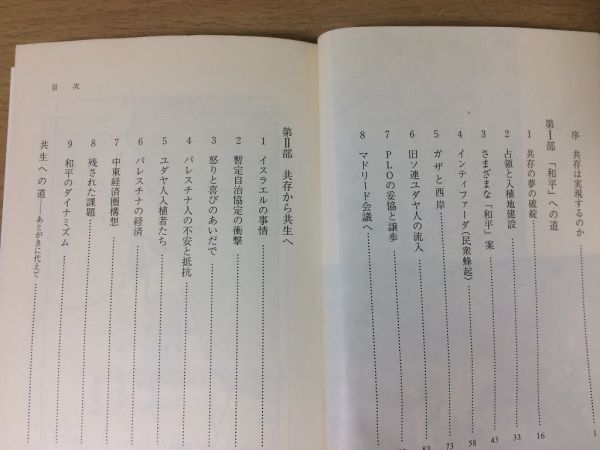 序 共存は実現するのか 1
第Ⅰ部 「和平」への道
1 共存の夢の破綻 16
2 占領と入植地建設 33
3 さまざまな「和平」案 43
4 インティファーダ(民衆蜂起) 58
5 ガザと西岸 73
6 旧ソ連ユダヤ人の流入 83
7 PLOの妥協と譲歩
8 マドリード会議へ
第Ⅱ部 共存から共生へ
1 イスラエルの事情
2 暫定自治協定の衝撃
3 怒りと喜びのあいだで
4 パレスチナ人の不安と抵抗
5 ユダヤ人入植者たち
6 パレスチナの経済
7 中東経済圏構想
8 残された課題
9 和平のダイナミズム
共生への道──あとがきに代えて
目次